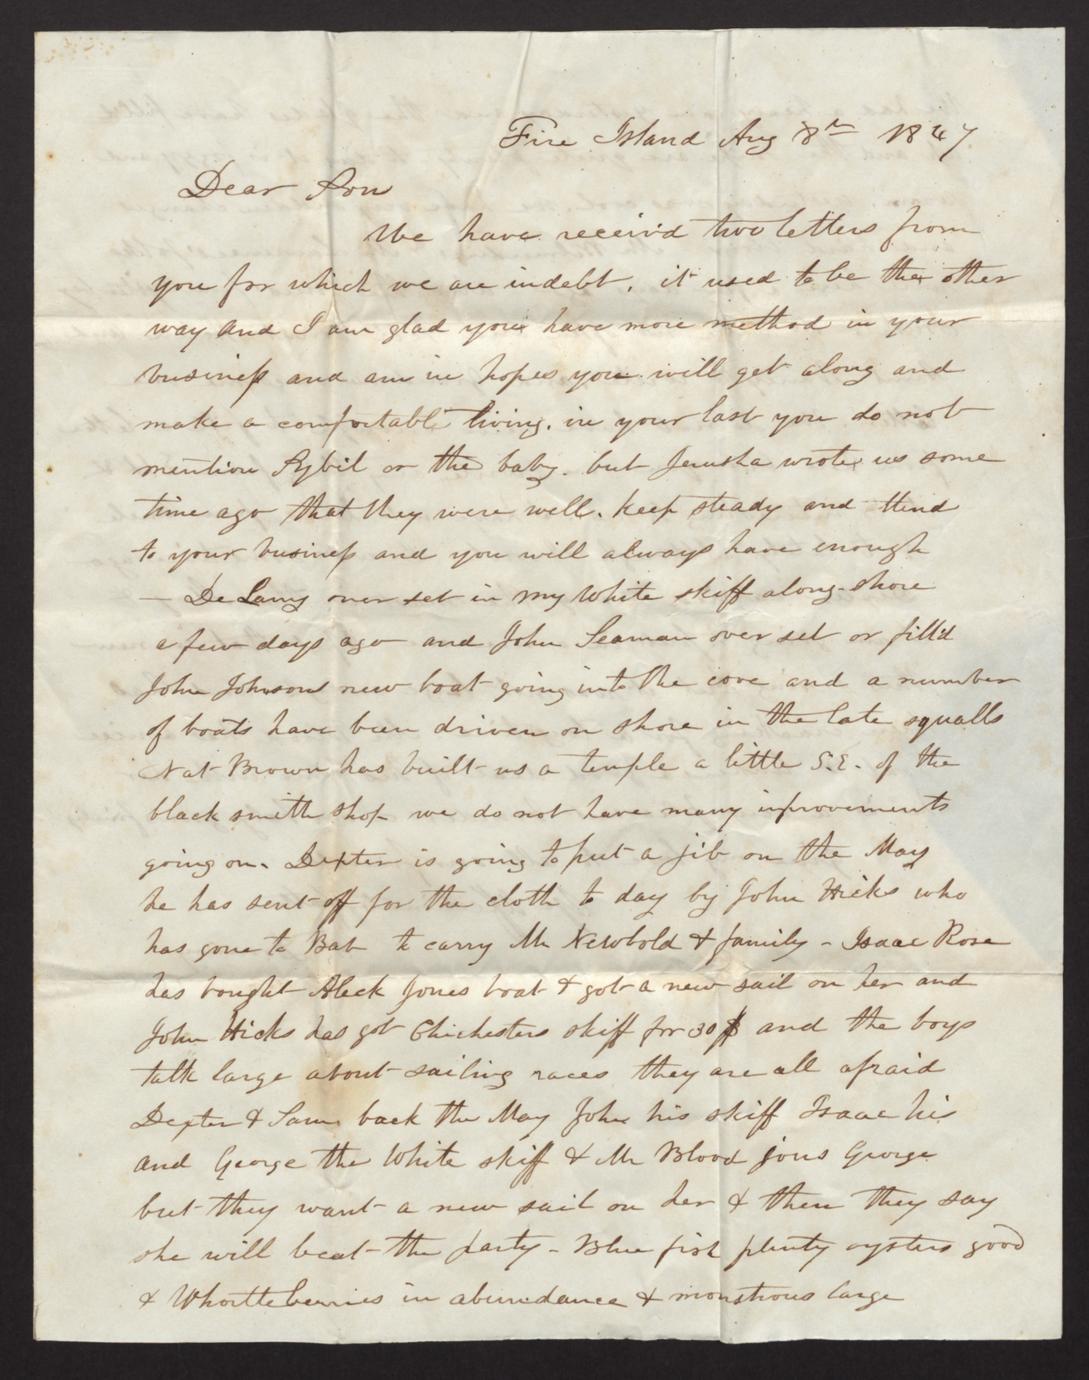 Fire Island Aug 8th 1847
Dear Son
We have receiv'd two letters from
you for which we are indebt. it used to be the other
way and I am glad you have more method in your
business and am in hopes you will get along and
make a comfortable living. in your last you do not
mention Sybil or the baby. but Jerusha wrote us some
time ago that they were well. keep steady and ttend
to your business and you will always have enough
— De over set in my White skiff along-shore
a few days ago and John Seaman over set or fill'd
John Johnsons new boat going into the cove and a number
of boats have been driven on shore in the late squalls
Nat Brown has built us a temple a little S.E. of the
black smith shop we do not have many improvements
going on. Dexter is going to put a jib on the May
he has sent off for the cloth to day by John Hicks who
has gone to Bab to carry Mr Newbold & family - Isaac Rose
has bought Aleck Jones boat & got a new sail on her and
John Hicks has got Chichesters skiff for 30 $ and the boys
talk large about sailing races they are all afraid
Dexter & Sam back the May John his skiff Isaac his
and George the White skiff & Mr Blood joins George
but they want a new sail on her & then they say
she will beat the party - Blue fish plenty oysters good
& Whortleberries in abundance & monstrous large